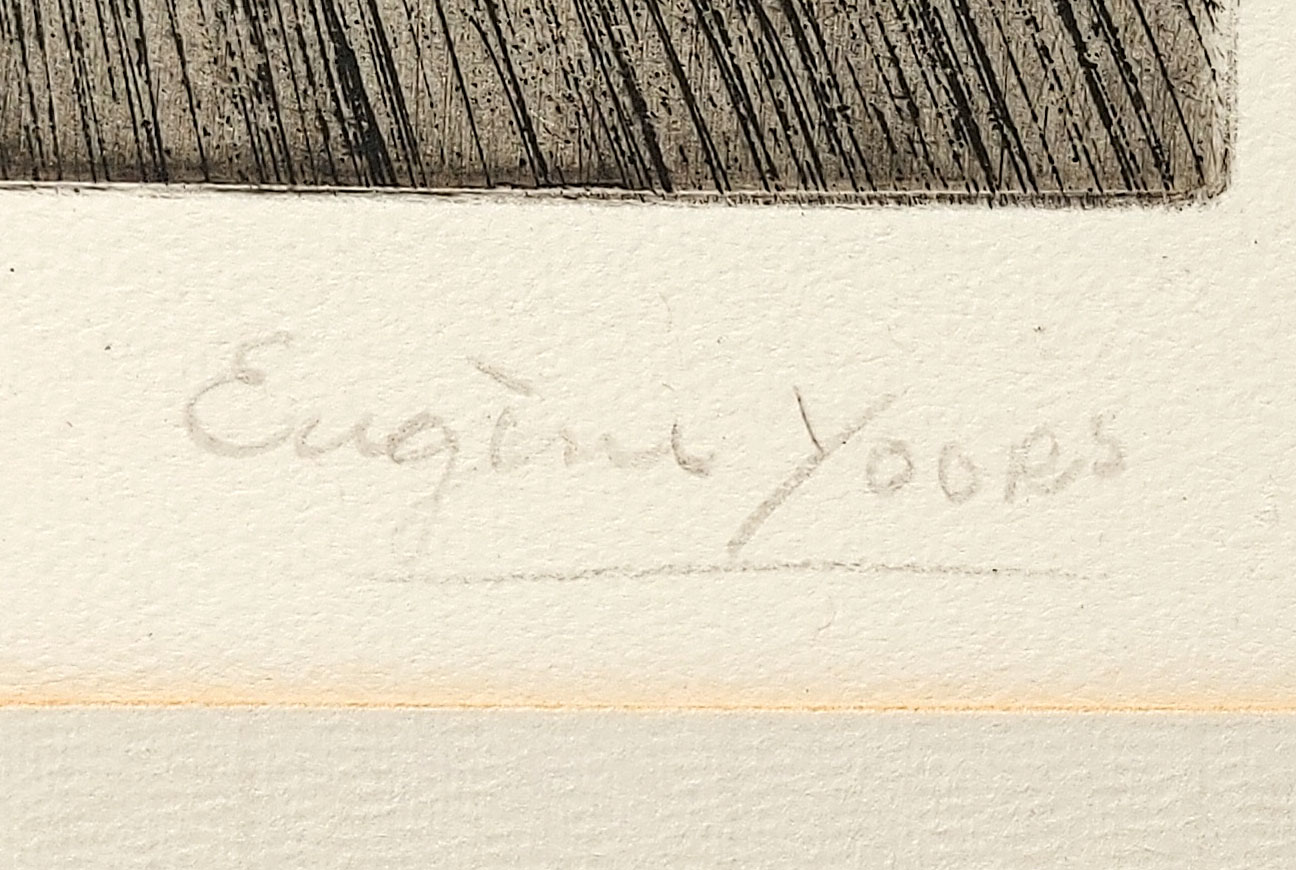 Eugène Yoors